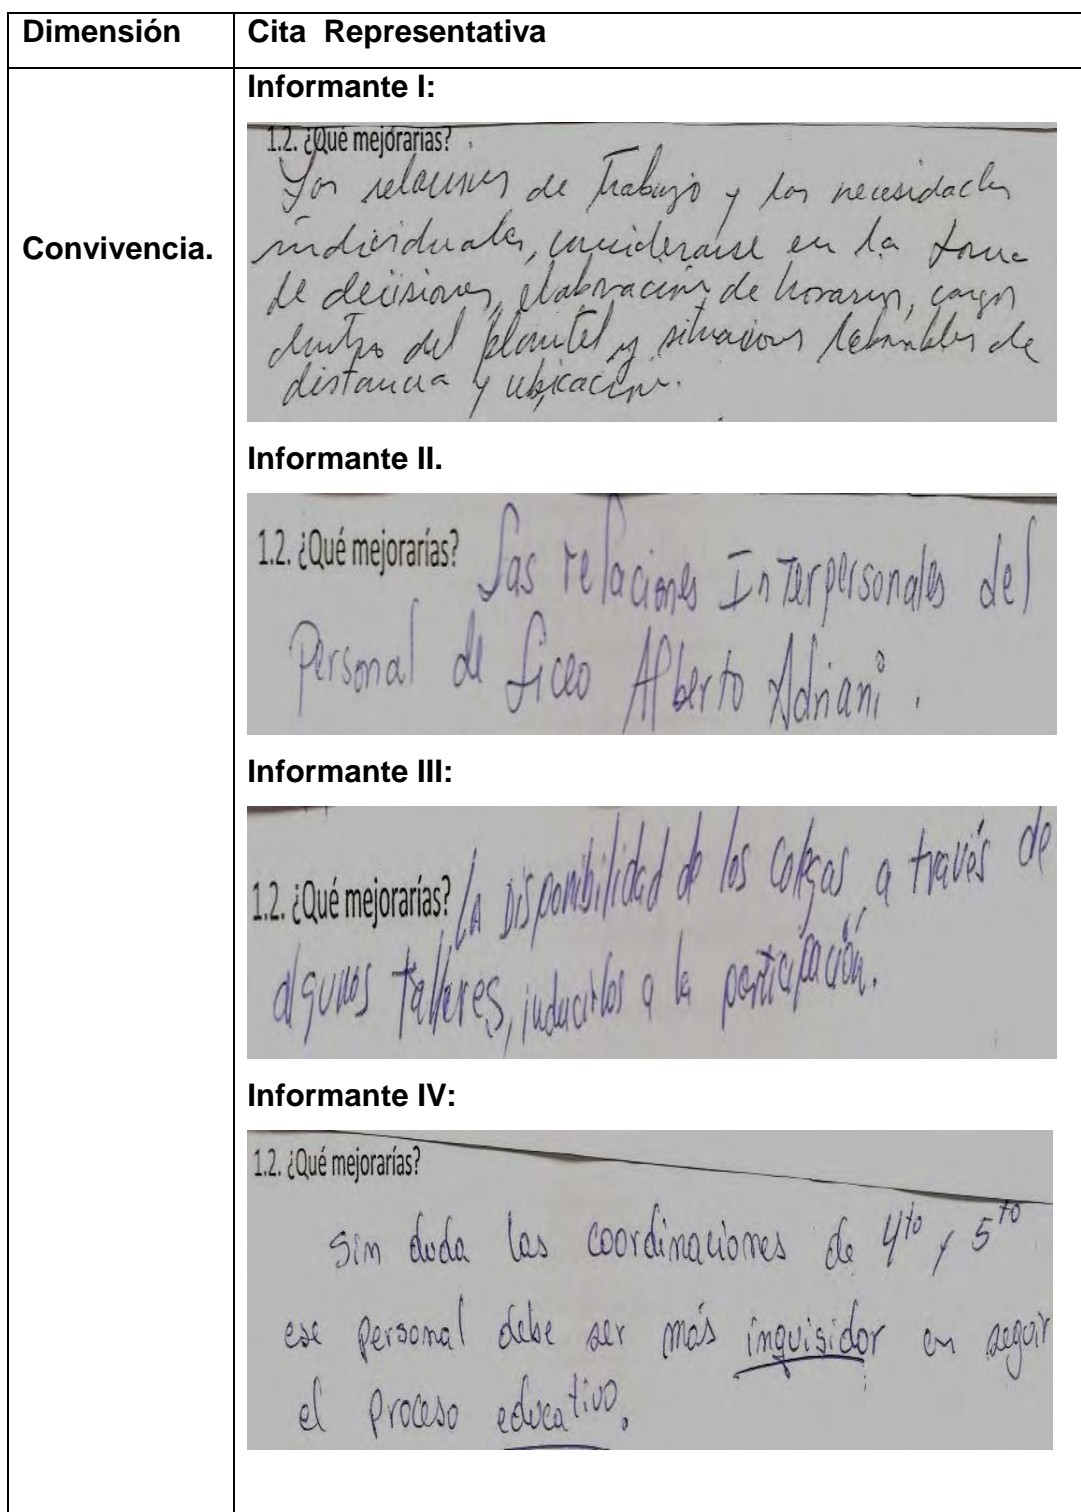 Dimensión
Cita Representativa
Convivencia.
Informante I:
1.2. ¿Qué mejorarías?
Las relaciones de Trabajo y las necesidades
individuales, considerarse en la toma
de decisiones, elaboración de horarios, cargos
dentro del plantel y situaciones laborables de
distancia y ubicación.
Informante II.
1.2. ¿Qué mejorarías? Las relaciones Interpersonales del
Personal de Liceo Alberto Adriani.
Informante III:
1.2. ¿Qué mejorarías? La Disponibilidad de los colegas a través de
algunos talleres, inducirlos a la participación.
Informante IV:
1.2. ¿Qué mejorarías?
Sin duda las coordinaciones de 4to y 5to
ese personal debe ser más inquisidor en seguir
el proceso educativo.